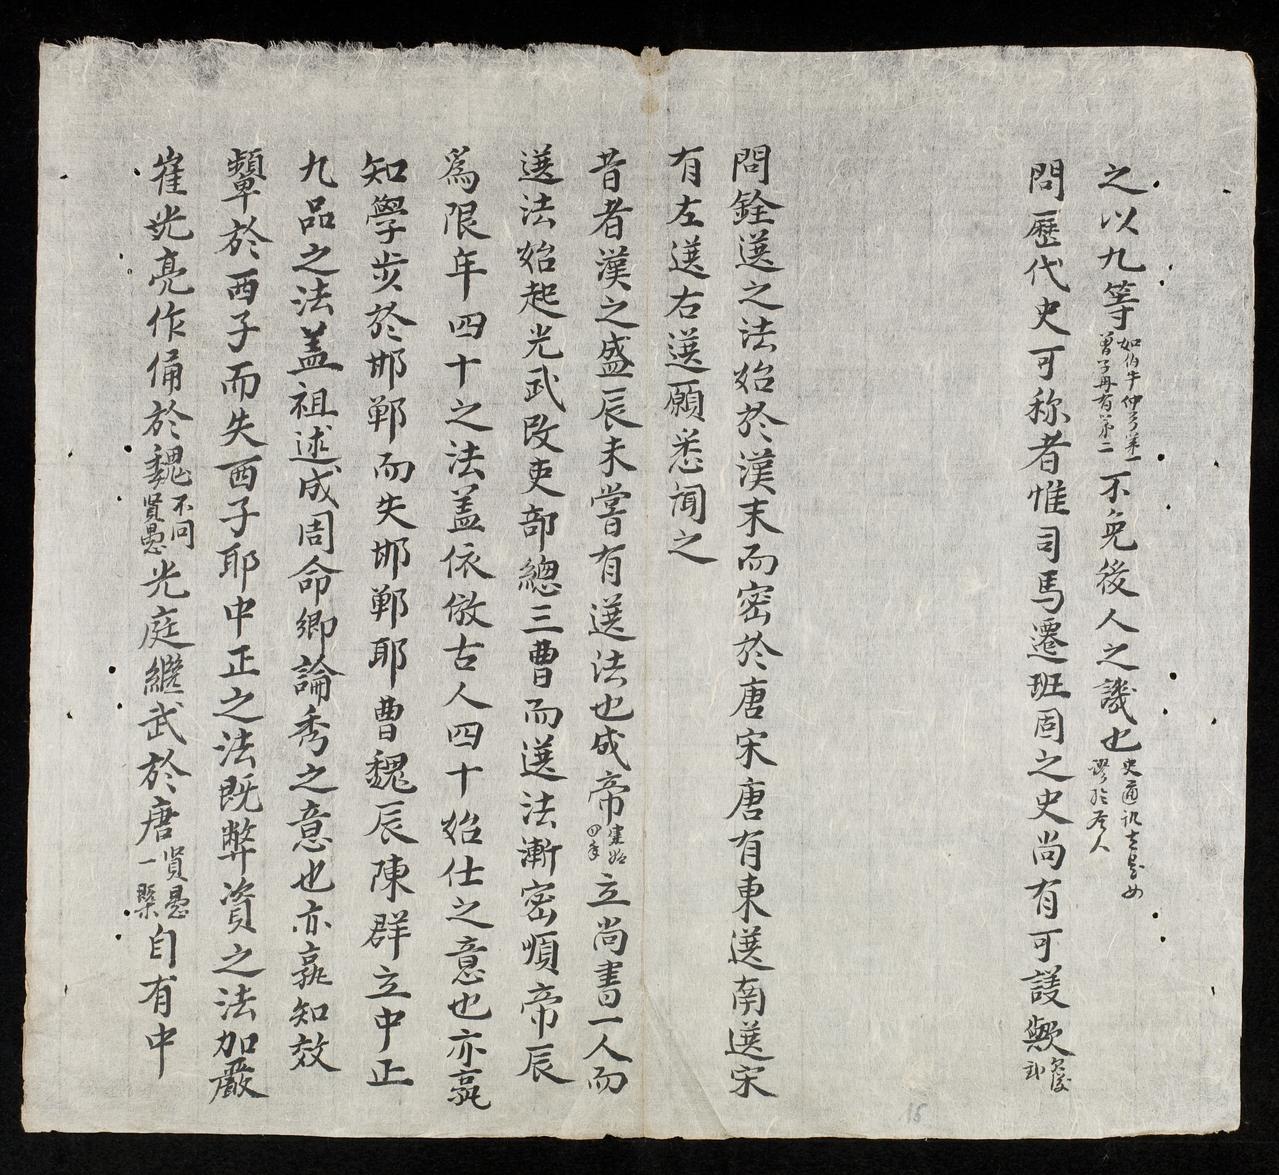 之以九等如伯牛仲弓第一曾子冉有第二不免後人之譏也史通訊其是如謬於
問歷代史可称者惟司馬遷班固之史尚有可議歟
問銓選之法始於漢末而密於唐宋唐有東選南選宋
有左選右選願悉聞之
昔者漢之盛辰未嘗有選法也成帝建始四年立尚書一人而
選法始起光武改吏部總三曹而選法漸密順帝辰
為限年四十之法盖依倣古人四十始仕之意也亦孰
知學步於邯鄲而失邯鄲耶曹魏辰陳群立中正
九品之法盖祖述成周命卿論秀之意也亦孰知效
顰於西子而失西子耶中正之法既弊資之法加嚴
崔光亮作俑於魏不问賢愚光庭繼武於唐賢愚一槩自有中